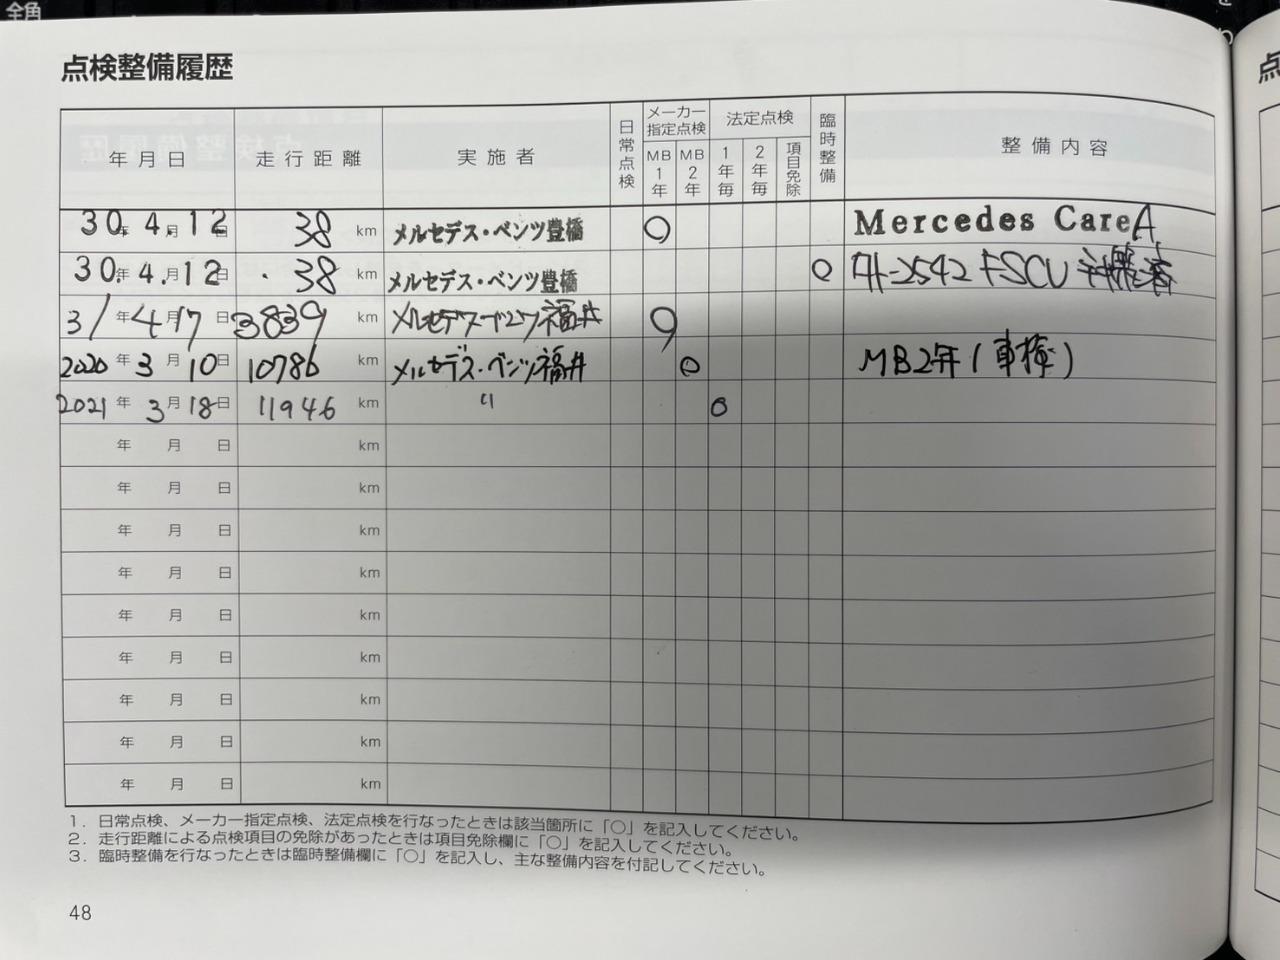 全角
点検整備履歴
年月日 走行距離 実施者 日常点検 メーカー指定点検 MB1年 MB2年 法定点検 1年毎 2年毎 項目免除 臨時整備 整備内容
30年4月12日 38 km メルセデス・ベンツ豊橋 ○ Mercedes Care A
30年4月12日 38 km メルセデス・ベンツ豊橋 ○ FSCU
31年4月17日 3839 km メルセデス 福井 ○
2020年3月10日 10786 km メルセデス・ベンツ福井 ○ MB2年(車検)
2021年3月18日 11946 km 〃 ○
年 月 日 km
年 月 日 km
年 月 日 km
年 月 日 km
年 月 日 km
年 月 日 km
年 月 日 km
年 月 日 km
年 月 日 km
1. 日常点検、メーカー指定点検、法定点検を行なったときは該当箇所に「○」を記入してください。
2. 走行距離による点検項目の免除があったときは項目免除欄に「○」を記入してください。
3. 臨時整備を行なったときは臨時整備欄に「○」を記入し、主な整備内容を付記してください。
48
点